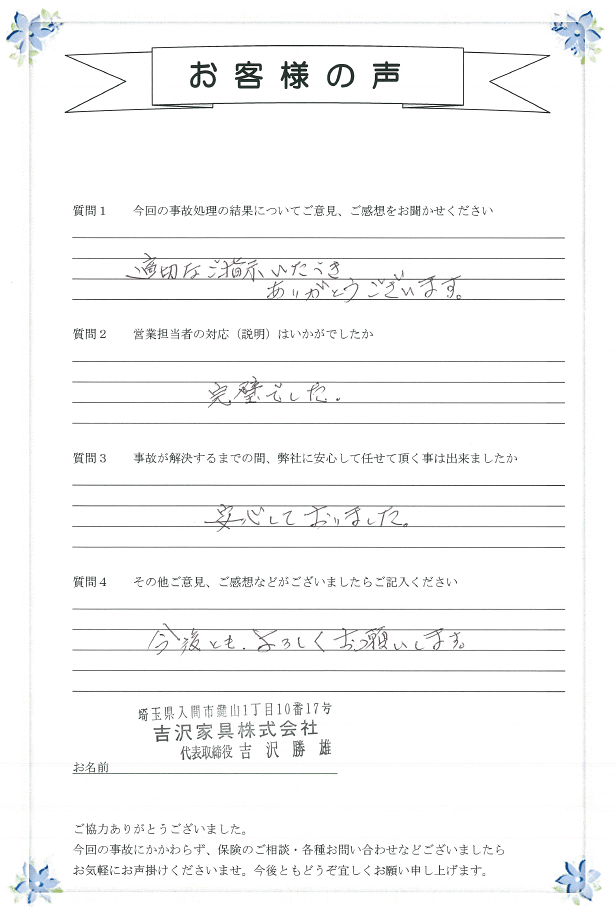 お客様の声
質問1 今回の事故処理の結果についてご意見、ご感想をお聞かせください
適切なご指示いただき
ありがとうございます。
質問2 営業担当者の対応（説明）はいかがでしたか
完璧でした。
質問3 事故が解決するまでの間、弊社に安心して任せて頂く事は出来ましたか
安心しておりました。
質問4 その他ご意見、ご感想などがございましたらご記入ください
今後とも、よろしくお願いします。
埼玉県入間市鍵山1丁目10番17号
吉沢家具株式会社
代表取締役 吉沢勝雄
お名前
ご協力ありがとうございました。
今回の事故にかかわらず、保険のご相談・各種お問い合わせなどございましたら
お気軽にお声掛けくださいませ。今後ともどうぞ宜しくお願い申し上げます。